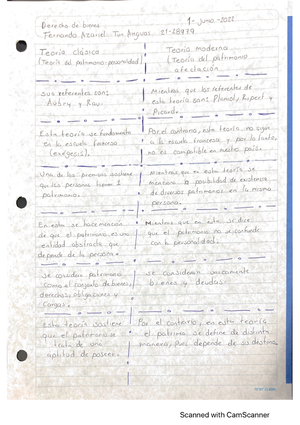 Derecho de bienes 1- junio - 2021
Fernando Azarel Tun Angua 21-28479
Teoría clásica
(Teoría del patrimonio personalidad)
Teoría moderna
(Teoría del patrimonio
afectación
Sus referentes son:
Aubry y Rau.
Mientras que los referentes de
esta teoría son: Planioly, Rupert y
Picard.
Esta teoría se fundamenta
en la escuela francesa
(exégesis).
Por el contrario, esta teoría no sigue
a la escuela francesa, y por lo tanto,
no es compatible en nuestro país.
Una de las premisas sostiene
que las personas tienen 1
patrimonio.
Mientras que en esta teoría se
menciona la posibilidad de existencia
de diversos patrimonios en la misma
persona.
En esta se hace mención
de que el patrimonio es una
entidad abstracta que
depende de la persona.
Mientras que en esta se dice
que el patrimonio no se confunde
con la personalidad.
Se considera patrimonio
como el conjunto de bienes,
derechos, obligaciones y
cargas.
Se consideran únicamente
bienes y deudas.
Esta teoría sostiene
que el patrimonio se
trata de una
aptitud de poseer.
Por el contrario, en esta teoría
el patrimonio se define de distinta
manera, pues depende de su destino.
Scanned with CamScanner